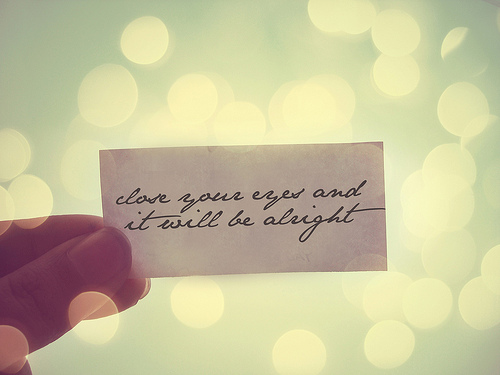 close your eyes and
it will be alright